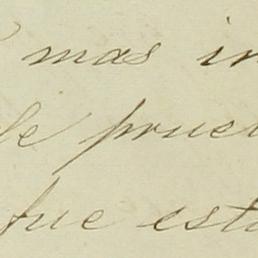 mas in
de prue
fue esta